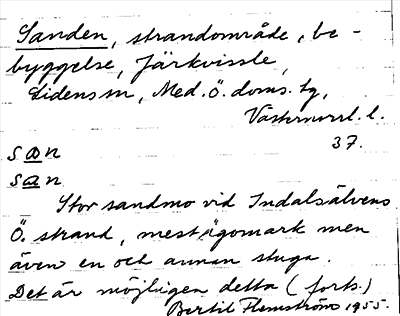 Sanden, strandområde, be-
byggelse, Järkvissle,
Lidens sn, Med. ö. doms. tg,
Västernorrl. l.
37.
san
san
Stor sandmo vid Indalsälvens
Ö. strand, mest ägomark men
även en och annan stuga.
Det är möjligen detta (forts.)
Bertil Flemström 1955.